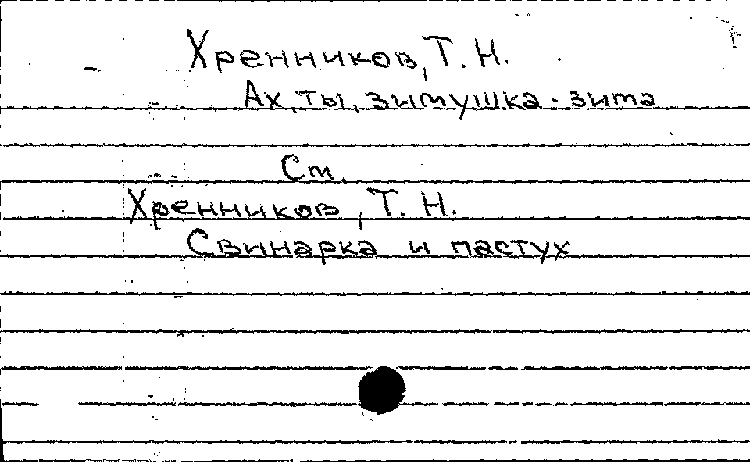 Хренников, Т. Н.
Ах, ты, зимушка-зима
См.
Хренников, Т. Н.
Свинарка и пастух